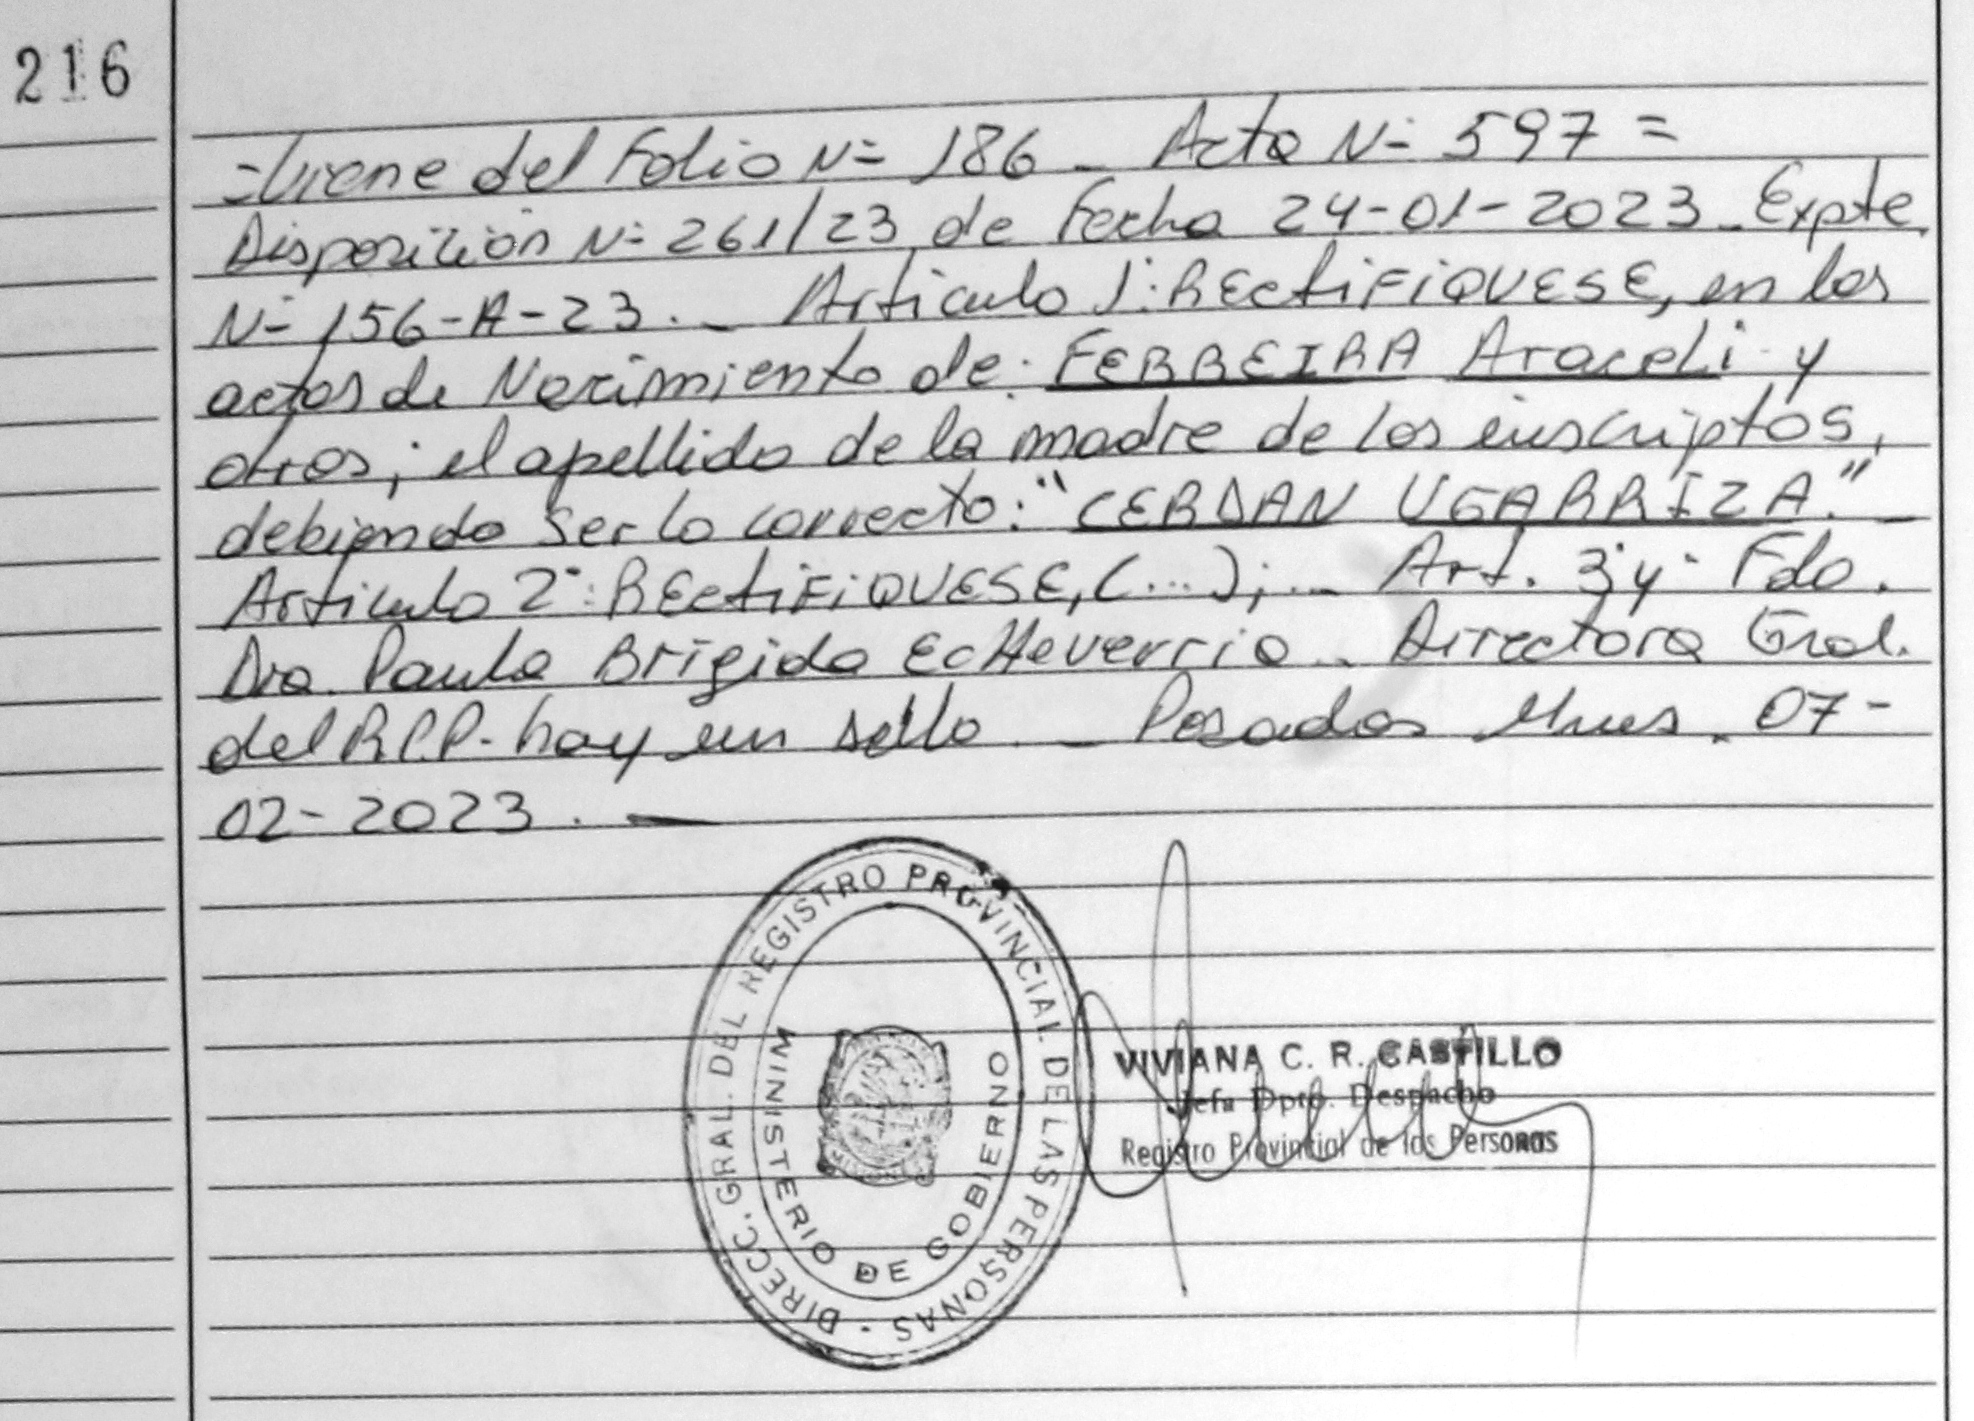 216
=Viene del Folio Nº 186 _ Acta Nº 597 =
Disposición Nº 261/23 de Fecha 24-01-2023_ Expte.
Nº 156-A-23. _ Articulo 1º: RECtiFiQUESE, en las
actas de Nacimiento de: FERREIRA Araceli y
otros; el apellido de la madre de los inscriptos,
debiendo ser lo correcto: "CERDAN UGARRIZA." _
Articulo 2º: RECtiFiQUESE, (...); _ Art. 3º y º Fdo.
Dra. Paula Brigida EcHeverria _ Directora Gral.
del R.P.P. hay un sello _ Posadas Mnes. 07-
02-2023. _
DIRECC. GRAL. DEL REGISTRO PROVINCIAL DE LAS PERSONAS -
MINISTERIO DE GOBIERNO
VIVIANA C. R. CASTILLO
Jefa Dpto. Despacho
Registro Provincial de las Personas